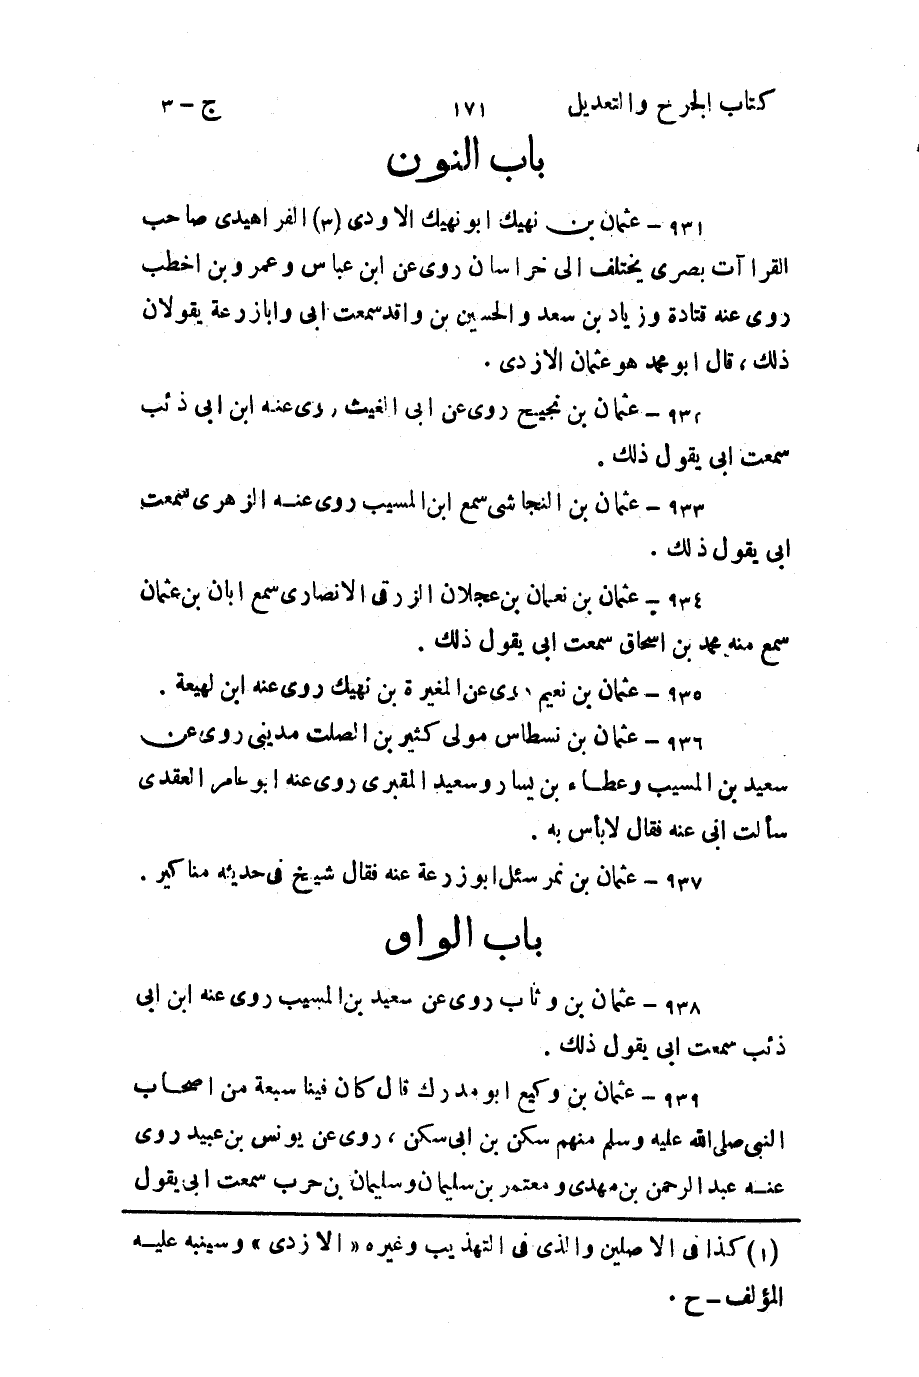 كتاب الجرح والتعديل ١٧١ ج - ٣
باب النون
٩٣١ - عثمان بن نهيك ابو نهيك الاودى (٣) الفراهيدى صاحب
القراآت بصرى يختلف الى خراسان روى عن ابن عباس وعمرو بن اخطب
روى عنه قتادة وزياد بن سعد والحسين بن واقد سمعت ابى وابا زرعة يقولان
ذلك ، قال ابو محمد هو عثمان الازدى .
٩٣٢ - عثمان بن نجيح روى عن ابى الغيث روى عنه ابن ابى ذئب
سمعت ابى يقول ذلك .
٩٣٣ - عثمان بن النجاشى سمع ابن المسيب روى عنه الزهرى سمعت
ابى يقول ذلك .
٩٣٤ - عثمان بن نعمان بن عجلان الزرقى الانصارى سمع ابان بن عثمان
سمع منه محمد بن اسحاق سمعت ابى يقول ذلك .
٩٣٥ - عثمان بن نعيم روى عن المغيرة بن نهيك روى عنه ابن لهيعة .
٩٣٦ - عثمان بن نسطاس مولى كثير بن الصلت مدينى روى عن
سعيد بن المسيب وعطاء بن يسار وسعيد المقبرى روى عنه ابو عامر العقدى
سألت ابى عنه فقال لا بأس به .
٩٣٧ - عثمان بن نمر سئل ابو زرعة عنه فقال شيخ فى حديثه مناكير .
باب الواو
٩٣٨ - عثمان بن وثاب روى عن سعيد بن المسيب روى عنه ابن ابى
ذئب سمعت ابى يقول ذلك .
٩٣٩ - عثمان بن وكيع ابو مدرك قال كان فينا سبعة من اصحاب
النبى صلى الله عليه وسلم منهم سكن بن ابى سكن ، روى عن يونس بن عبيد روى
عنه عبد الرحمن بن مهدى ومعتمر بن سليمان وسليمان بن حرب سمعت ابى يقول
(١) كذا فى الاصلين والذى فى التهذيب وغيره « الازدى » وسينبه عليه
المؤلف - ح .